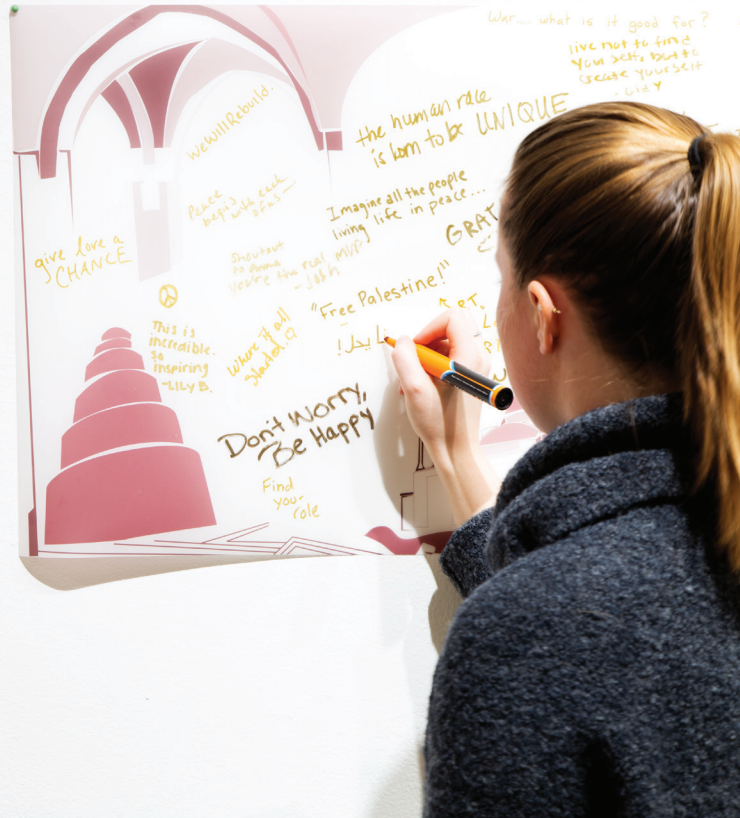 War... what is it good for?
live not to find
yourself, but to
create yourself
WeWillRebuild.
the human race
is born to be UNIQUE
Peace
begins
with each
of us—
Imagine all the people
living life in peace...
GRAT
give love a
CHANCE
Shoutout
to
you're the real mvp!
- Josh
"Free Palestine!"
This is
incredible.
so
inspiring
-LILY B.
Where it all
started.
Don't Worry,
Be Happy
Find
your
role